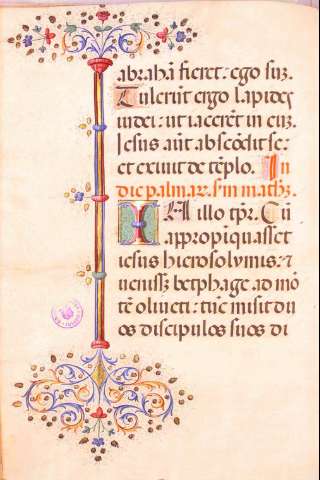 abrahã fieret: ego sũ.
Tulerũt ergo lapides
iudei: ut iacerẽt in eũ.
Iesus aũt abscõdit se:
et exiuit de tẽplo. In
die palmar. sm̃ mathẽ.
IN illo tpr̃. Cũ
appropiquasset
iesus hierosolymis: ⁊
uenissz betphage ad mõ
tẽ oliueti: tũc misit du
os discipulos suos di